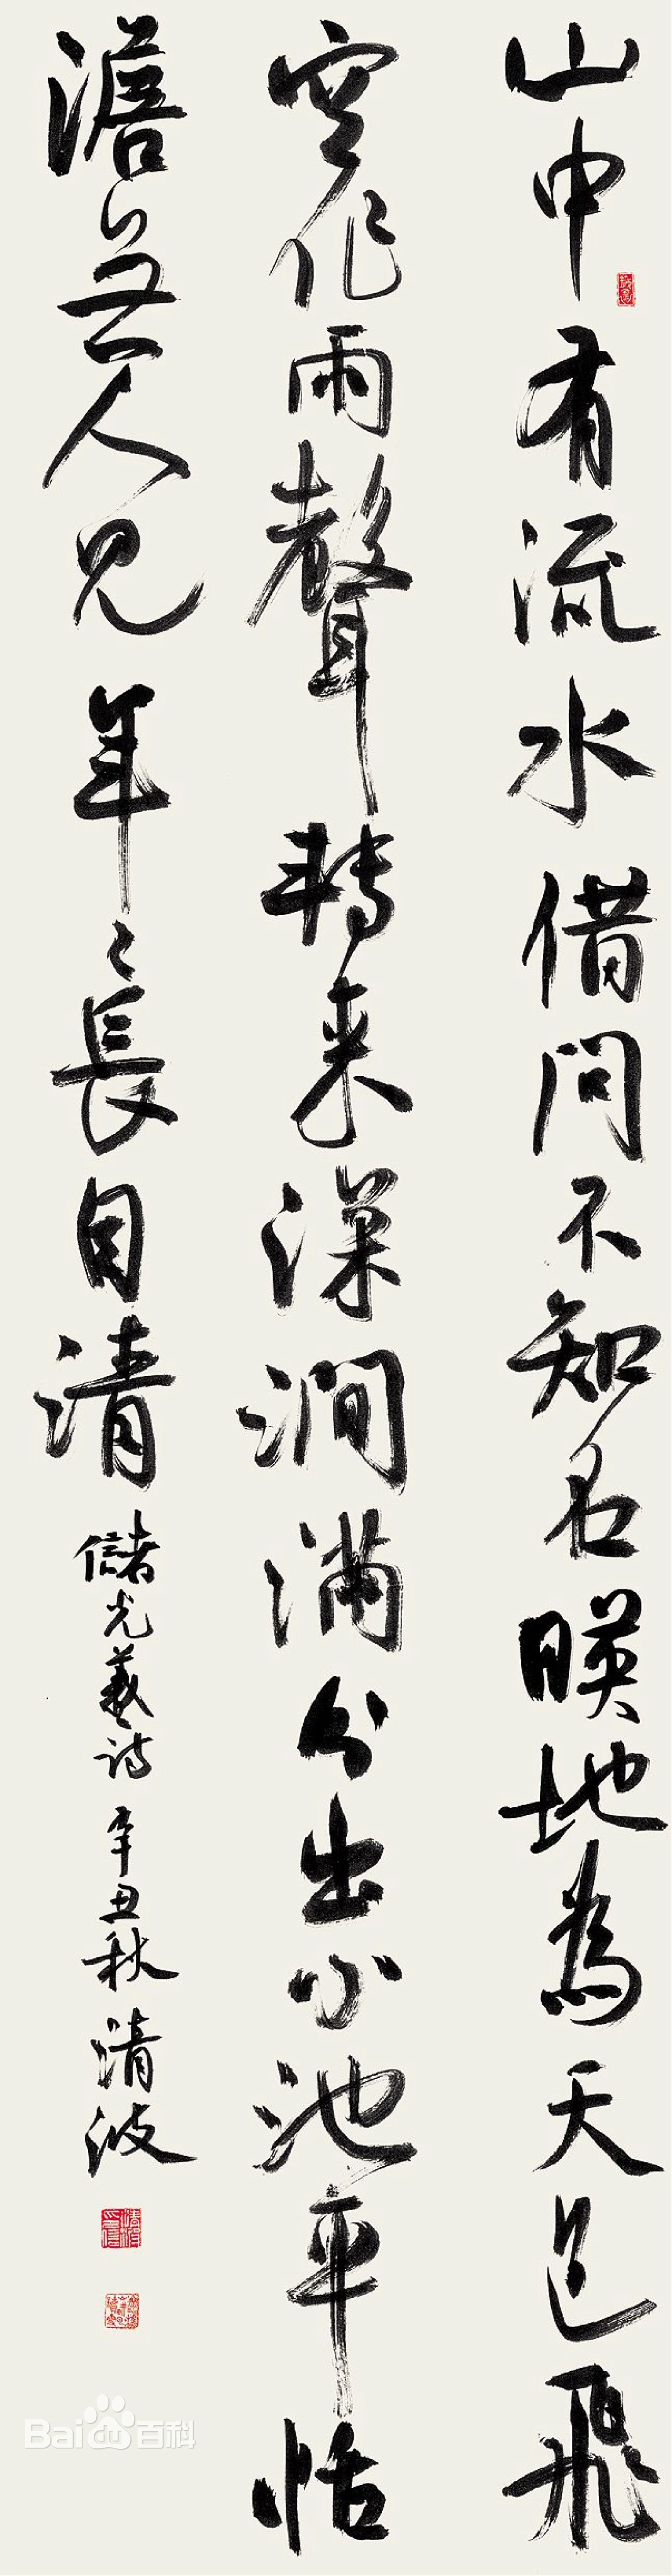 山中有流水借问不知名暎地為天色飛
空作雨聲轉来深澗满分出小池平恬
澹無人見年々長自清
儲光羲诗 辛丑秋 清波
Bai百科